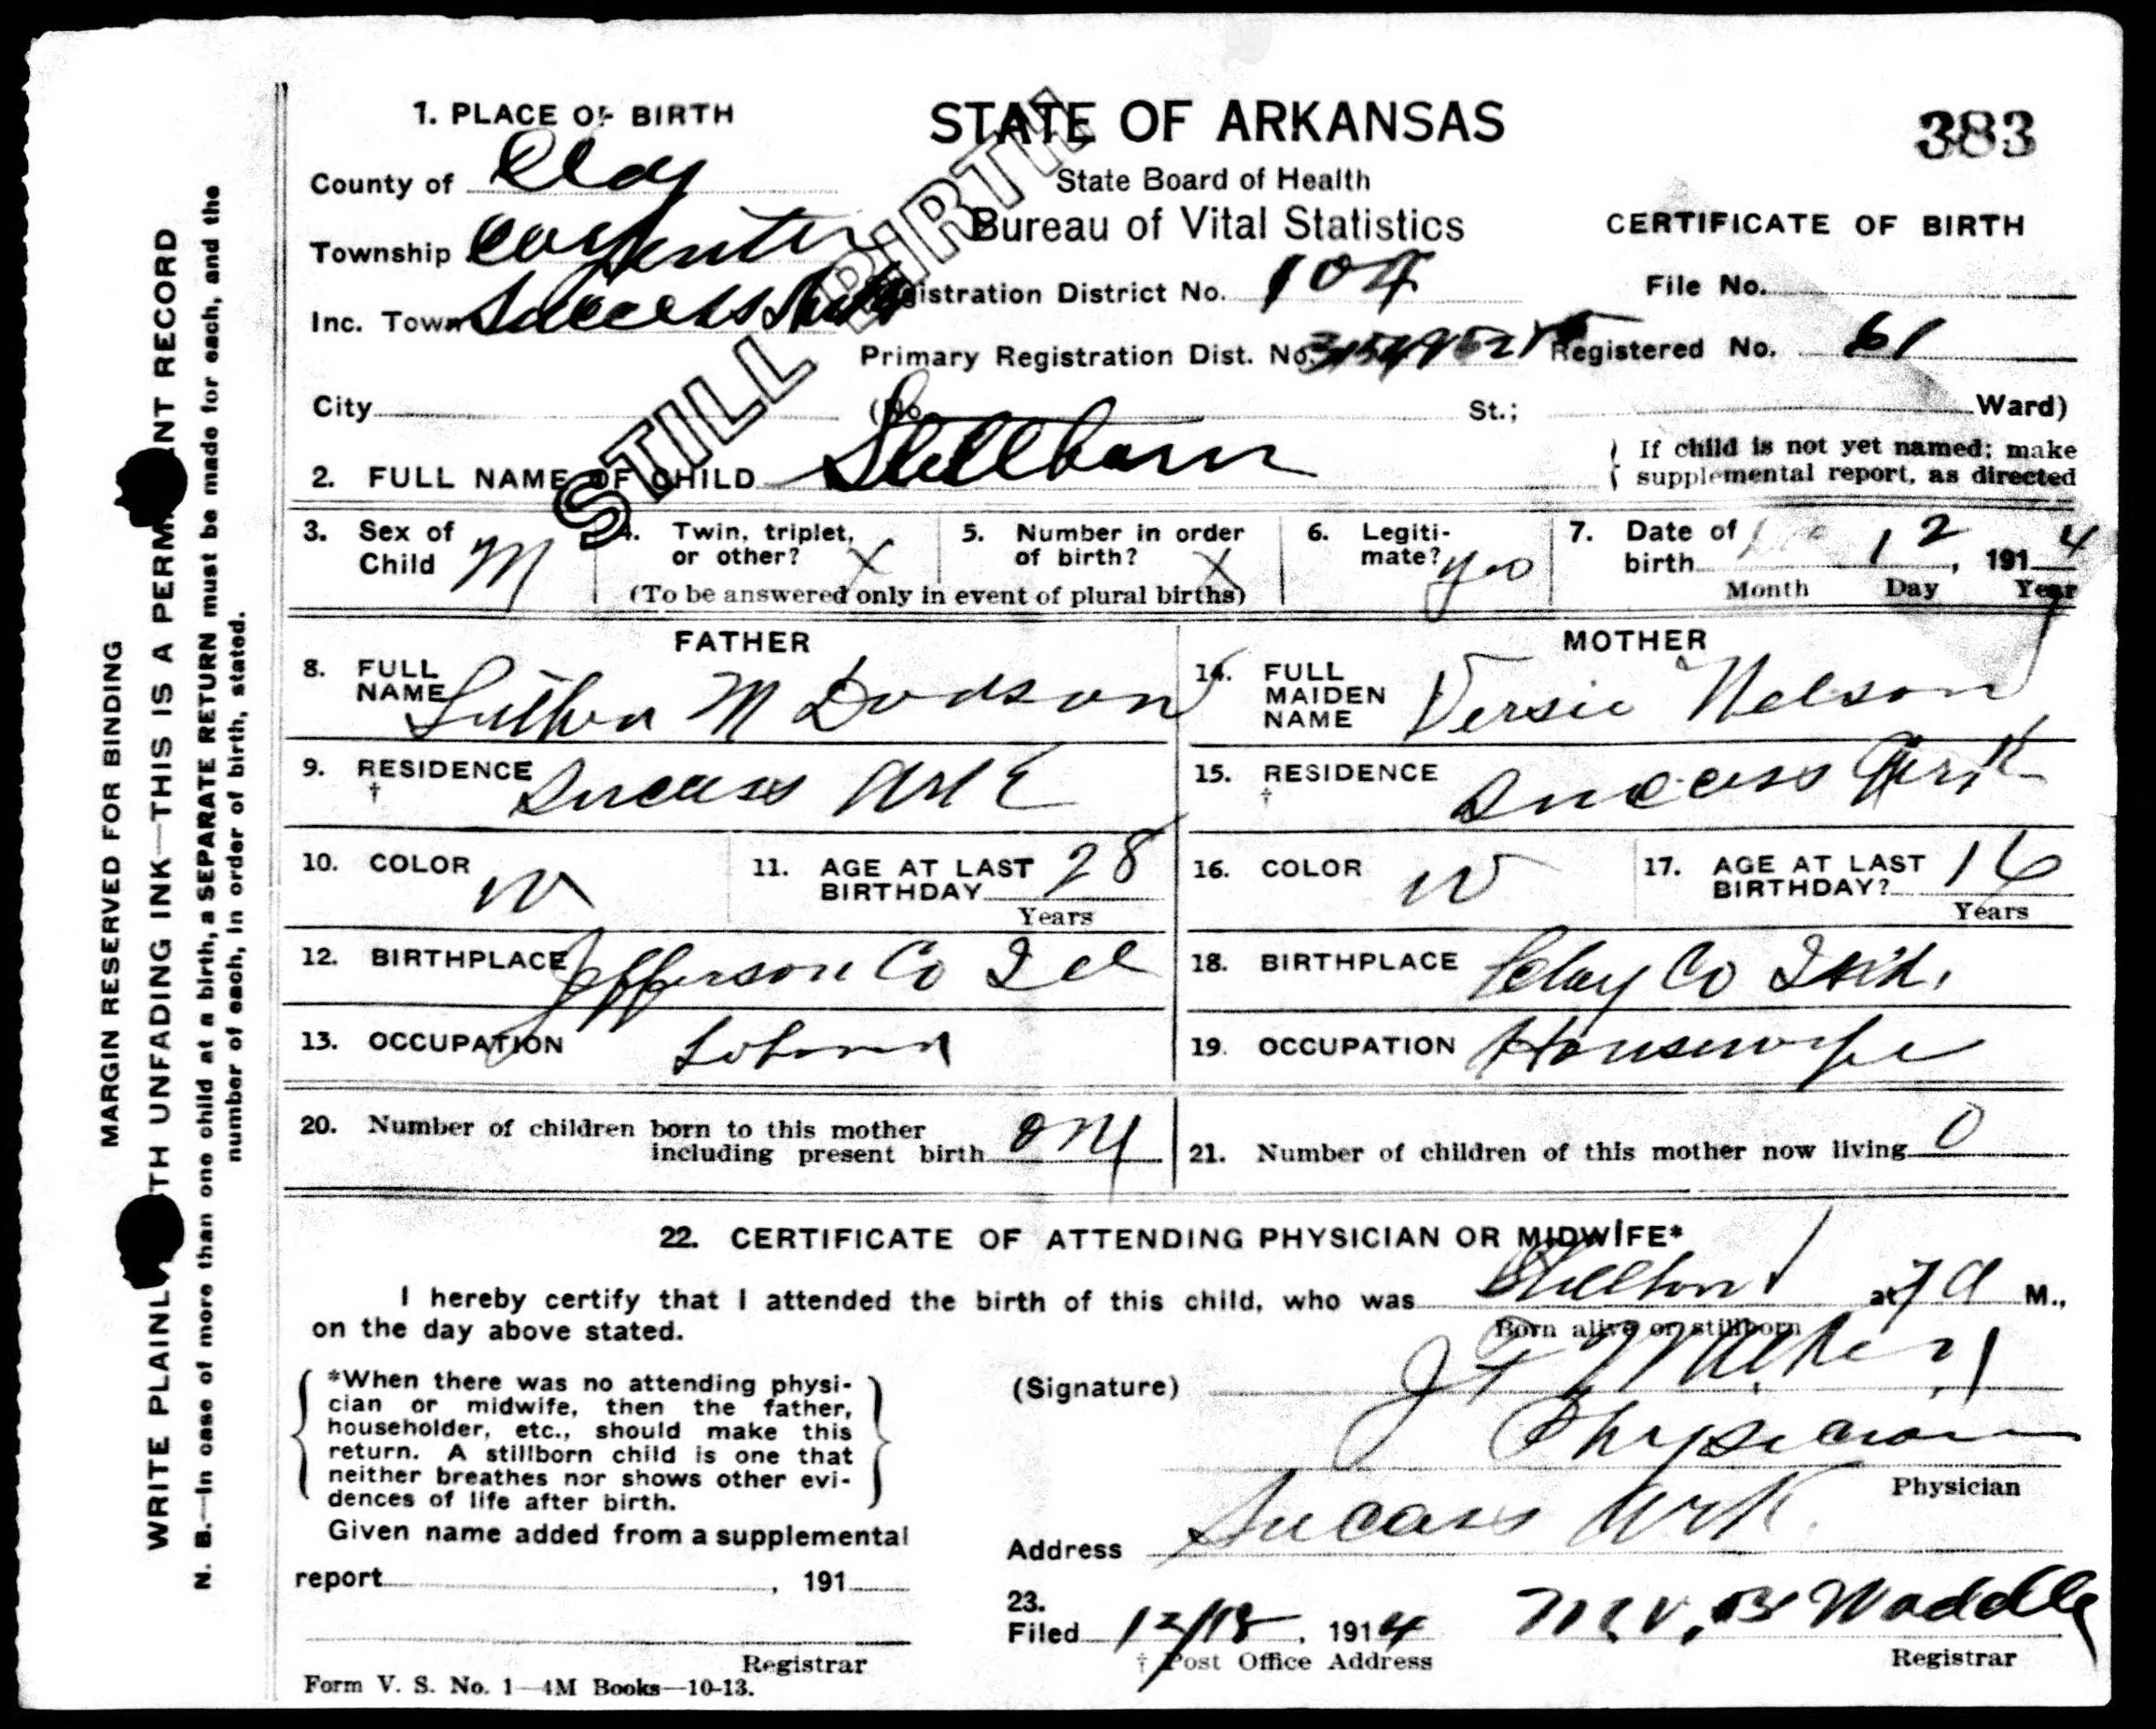 1. PLACE OF BIRTH
County of Clay
Township Carpenter
Inc. Town Success
City
STATE OF ARKANSAS
State Board of Health
Bureau of Vital Statistics
Registration District No. 104
Primary Registration Dist. No.
(No. St.; Ward)
383
CERTIFICATE OF BIRTH
File No.
Registered No. 61
STILL BIRTH
2. FULL NAME OF CHILD Stillborn
If child is not yet named; make
supplemental report, as directed
3. Sex of Child M
4. Twin, triplet, or other? X
5. Number in order of birth? X
(To be answered only in event of plural births)
6. Legitimate? yes
7. Date of birth Dec 12, 1914
Month Day Year
FATHER
8. FULL NAME Luther M Dodson
9. RESIDENCE † Success Ark
10. COLOR W
11. AGE AT LAST BIRTHDAY 28
Years
12. BIRTHPLACE Jefferson Co Ill
13. OCCUPATION
MOTHER
14. FULL MAIDEN NAME Versie Nelson
15. RESIDENCE † Success Ark
16. COLOR W
17. AGE AT LAST BIRTHDAY? 16
Years
18. BIRTHPLACE Clay Co
19. OCCUPATION Housewife
20. Number of children born to this mother
including present birth one
21. Number of children of this mother now living 0
22. CERTIFICATE OF ATTENDING PHYSICIAN OR MIDWIFE*
I hereby certify that I attended the birth of this child, who was Stillborn at 7 a M.,
Born alive or stillborn
on the day above stated.
*When there was no attending physi-
cian or midwife, then the father,
householder, etc., should make this
return. A stillborn child is one that
neither breathes nor shows other evi-
dences of life after birth.
Given name added from a supplemental
report , 191
Registrar
Form V. S. No. 1—4M Books—10-13.
(Signature) J T
Physician
Physician
Address Success Ark.
23.
Filed 12/18, 1914 B Waddle
† Post Office Address
Registrar
MARGIN RESERVED FOR BINDING
WRITE PLAINLY WITH UNFADING INK—THIS IS A PERMANENT RECORD
N. B.—In case of more than one child at a birth, a SEPARATE RETURN must be made for each, and the
number of each, in order of birth, stated.